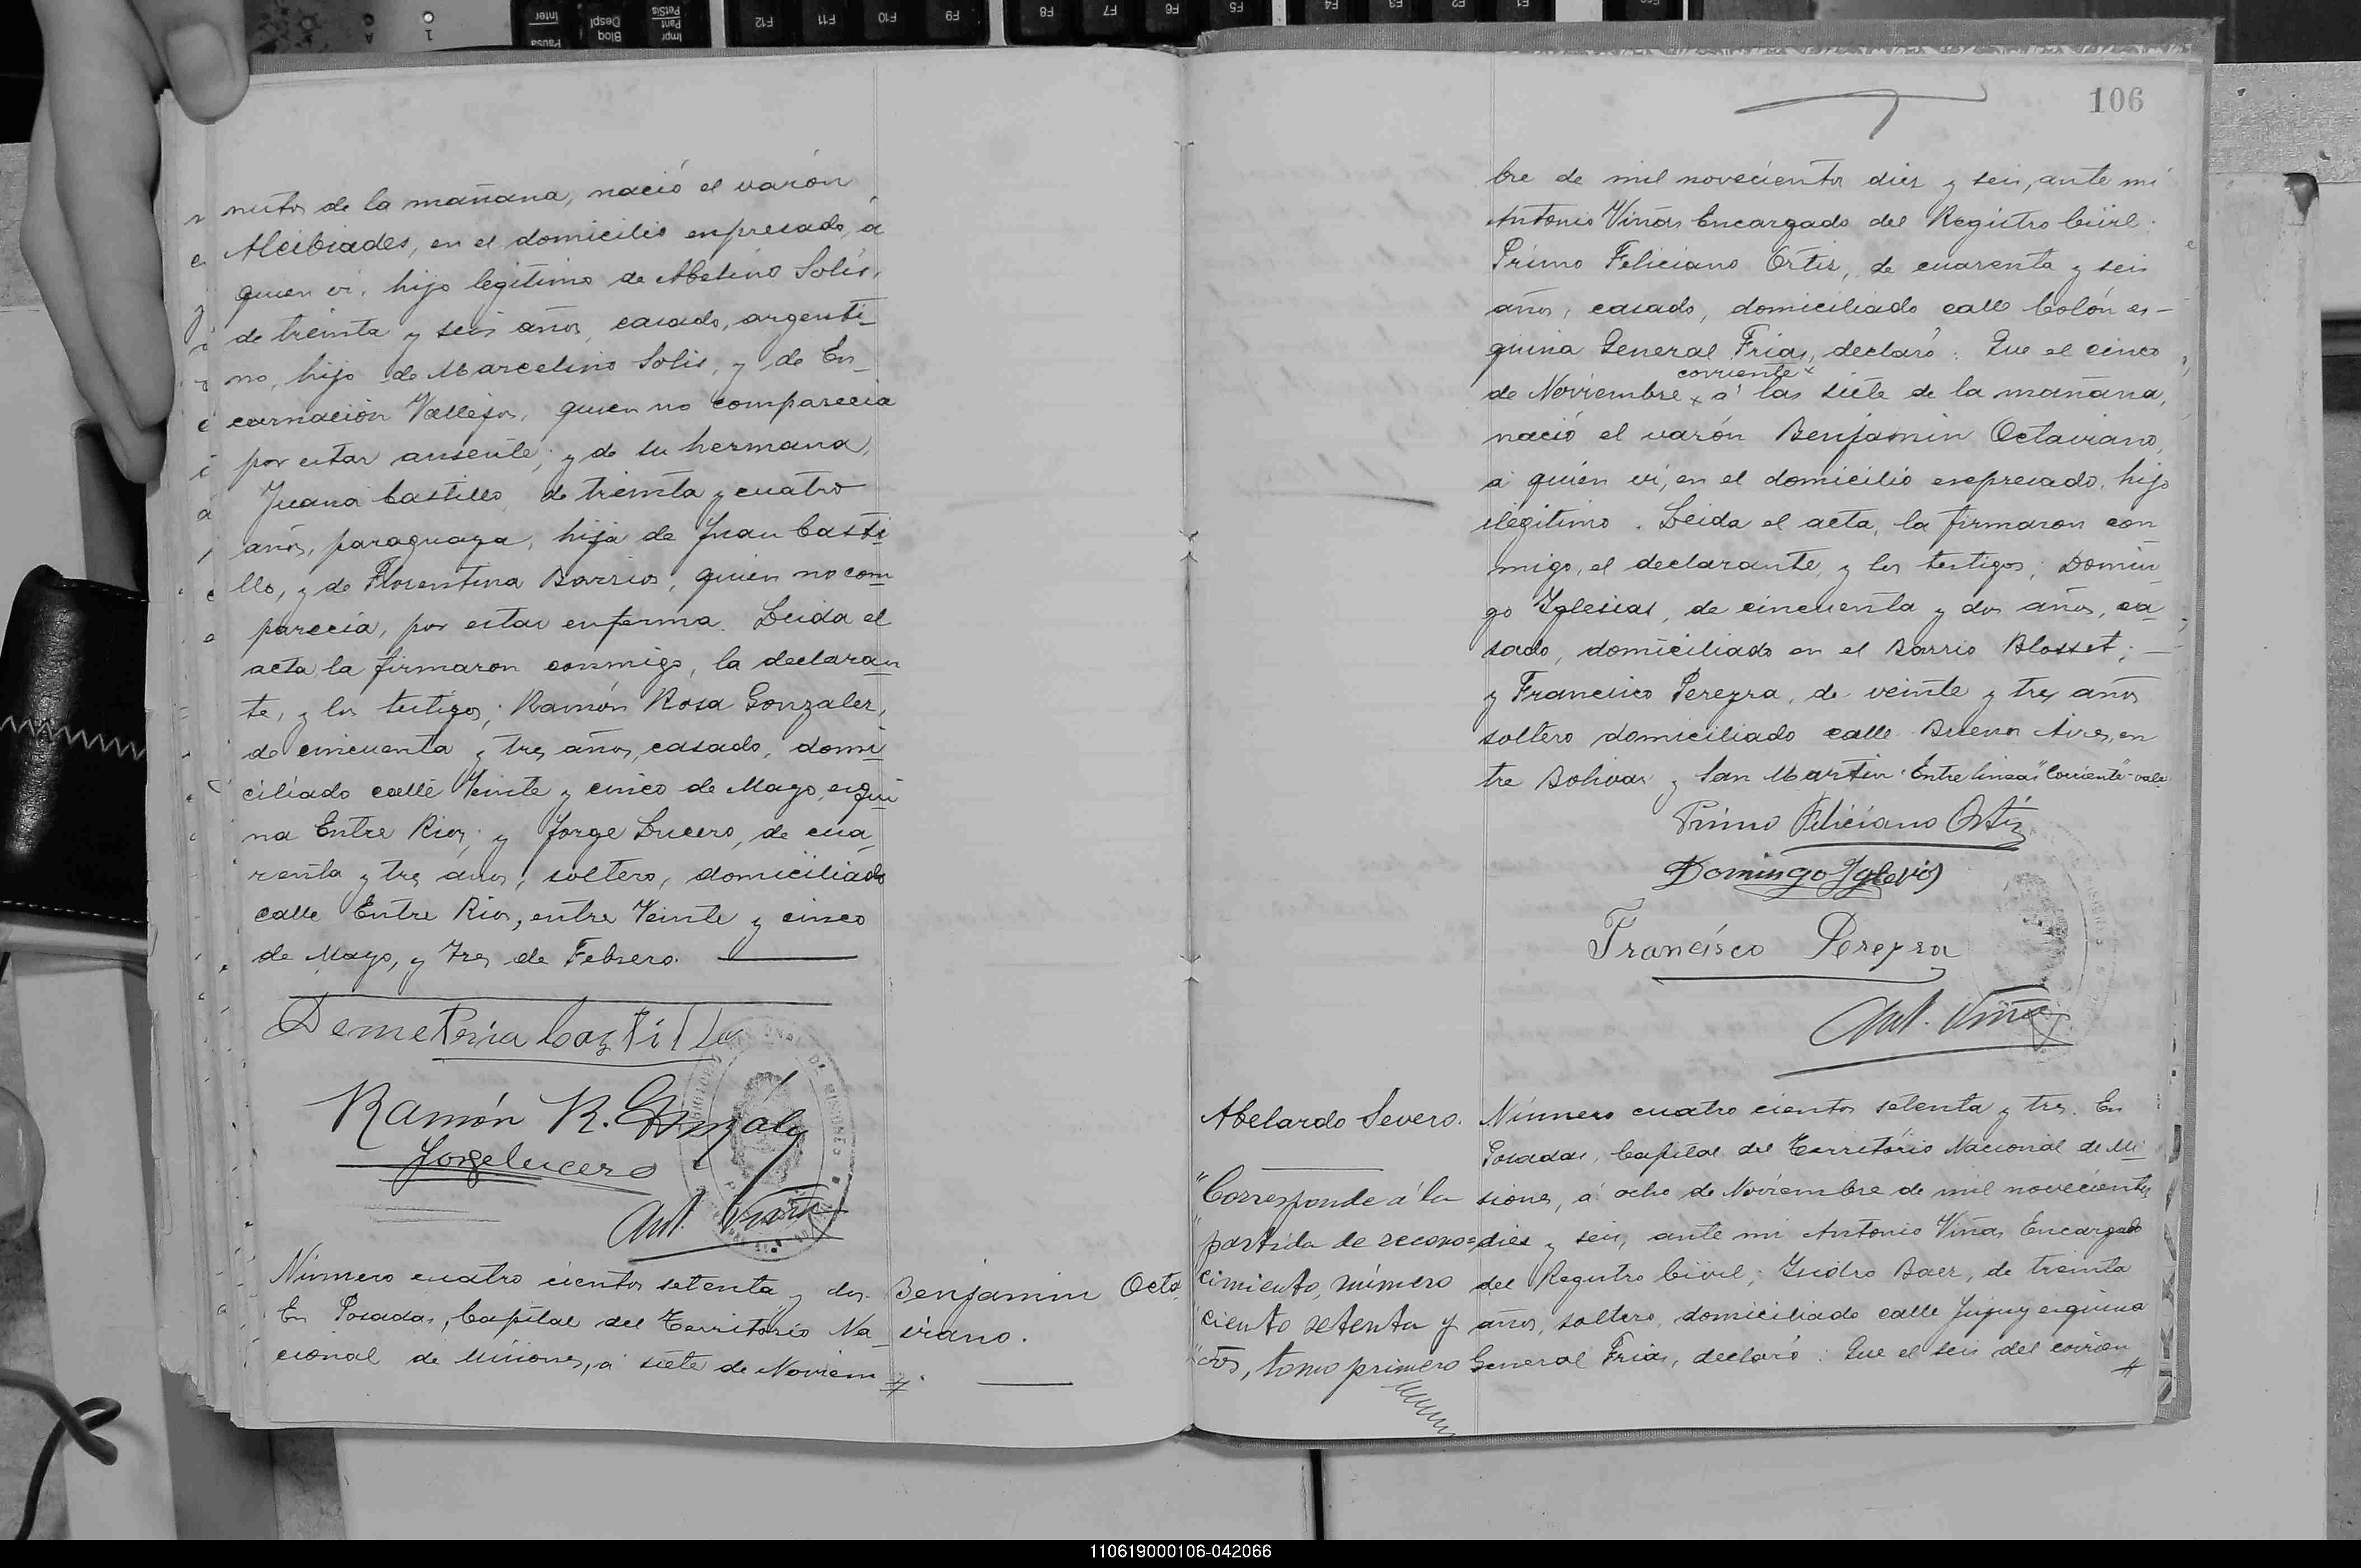 nutos de la mañana, nació el varón
Alcibiades, en el domicilio expresado, á
quien ví, hijo legítimo de Abelino Solis,
de treinta y seis años, casado, argenti_
no, hijo de Marcelino Solis, y de En_
carnación Vallejos, quien no comparecia
por estar ausente; y de su hermana,
Juana Castillo, de treinta y cuatro
años, paraguaya, hija de Juan Casti
llo, y de Florentina Barrios, quien no com
parecia, por estar enferma. Leida el
acta, la firmaron conmigo, la declaran
te, y los testigos; Ramón Rosa Gonzalez,
de cincuenta y tres años, casado, domi
ciliado calle Veinte y cinco de Mayo, esqui
na Entre Rios; y Jorge Lucero, de cua_
renta y tres años, soltero, domiciliado
calle Entre Rios, entre Veinte y cinco
de Mayo, y Tres de Febrero.
Demetria Castillo
Ramón R. Gonzalez
Jorge lucero
Ant. Viñas
Número cuatro cientos setenta y dos.
En Posadas, Capital del Territorio Na_
cional de Misiones, á siete de Noviem
Benjamin Octa
viano.
106
bre de mil novecientos diez y seis, ante mí
Antonio Viñas Encargado del Registro Civil.
Primo Feliciano Ortiz, de cuarenta y seis
años, casado, domiciliado calle Colón es-
quina General Frias, declaró: Que el cinco
corriente x
de Noviembre x á las siete de la mañana,
nació el varón Benjamin Octaviano,
á quien ví, en el domicilio expresado, hijo
ilegítimo. Leida el acta, la firmaron con
migo, el declarante, y los testigos; Domin_
go Iglesias, de cincuenta y dos años, ca_
sado, domiciliado en el Barrio Blosset; —
y Francisco Pereyra, de veinte y tres años
soltero domiciliado calle Buenos Aires, en
tre Bolivar y San Martin. Entre lineas "Corriente"-vale
Primo Feliciano Ortiz
Domingo Yglesias
Francisco Pereyra
Ant. Viñas
Abelardo Severo.
"Corresponde á la
"partida de recono=
"cimiento, número
"ciento setenta y
"dos, tomo primero
Número cuatro cientos setenta y tres. En
Posadas, Capital del Territorio Nacional de Mi_
siones, á ocho de Noviembre de mil novecientos
diez y seis, ante mi Antonio Viñas Encargado
del Registro Civil; Isidro Baez, de treinta
años, soltero, domiciliado calle Jujuy esquina
General Frias, declaró: Que el seis del corrien
110619000106-042066